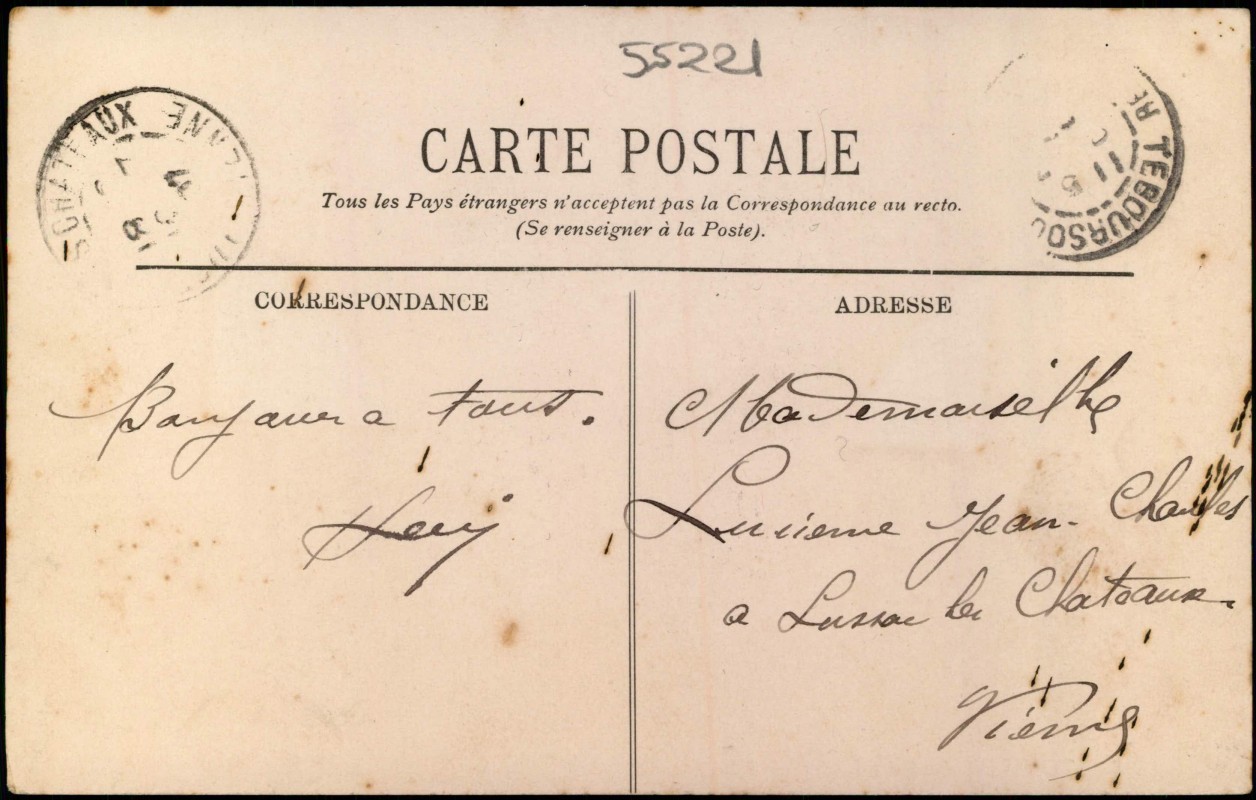 55221
CHATEAUX
TEBOURSOU
CARTE POSTALE
Tous les Pays étrangers n'acceptent pas la Correspondance au recto.
(Se renseigner à la Poste).
CORRESPONDANCE
ADRESSE
Bonjour a tous.
Mademoiselle
Lucienne Jean-Charles
a Lussac les Chateaux.
Vienne